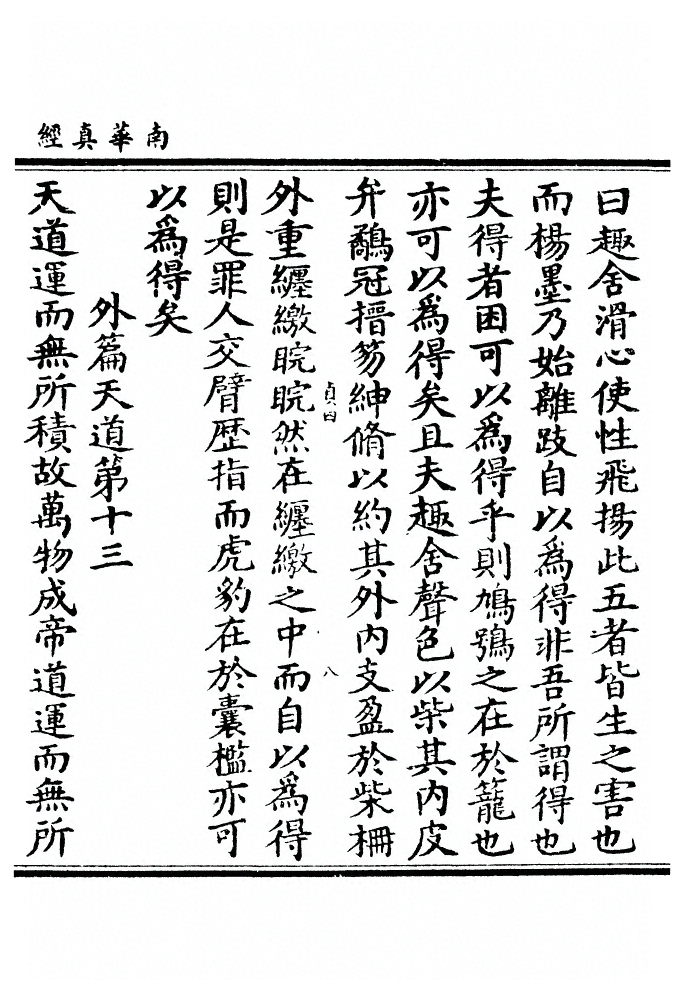 南華真經
曰趣舍滑心使性飛揚此五者皆生之害也
而楊墨乃始離跂自以為得非吾所謂得也
夫得者困可以為得乎則鳩鴞之在於籠也
亦可以為得矣且夫趣舍聲色以柴其內皮
弁鷸冠搢笏紳脩以約其外內支盈於柴柵
貞四
八
外重纆繳睆睆然在纆繳之中而自以為得
則是罪人交臂歷指而虎豹在於囊檻亦可
以為得矣
外篇天道第十三
天道運而無所積故萬物成帝道運而無所